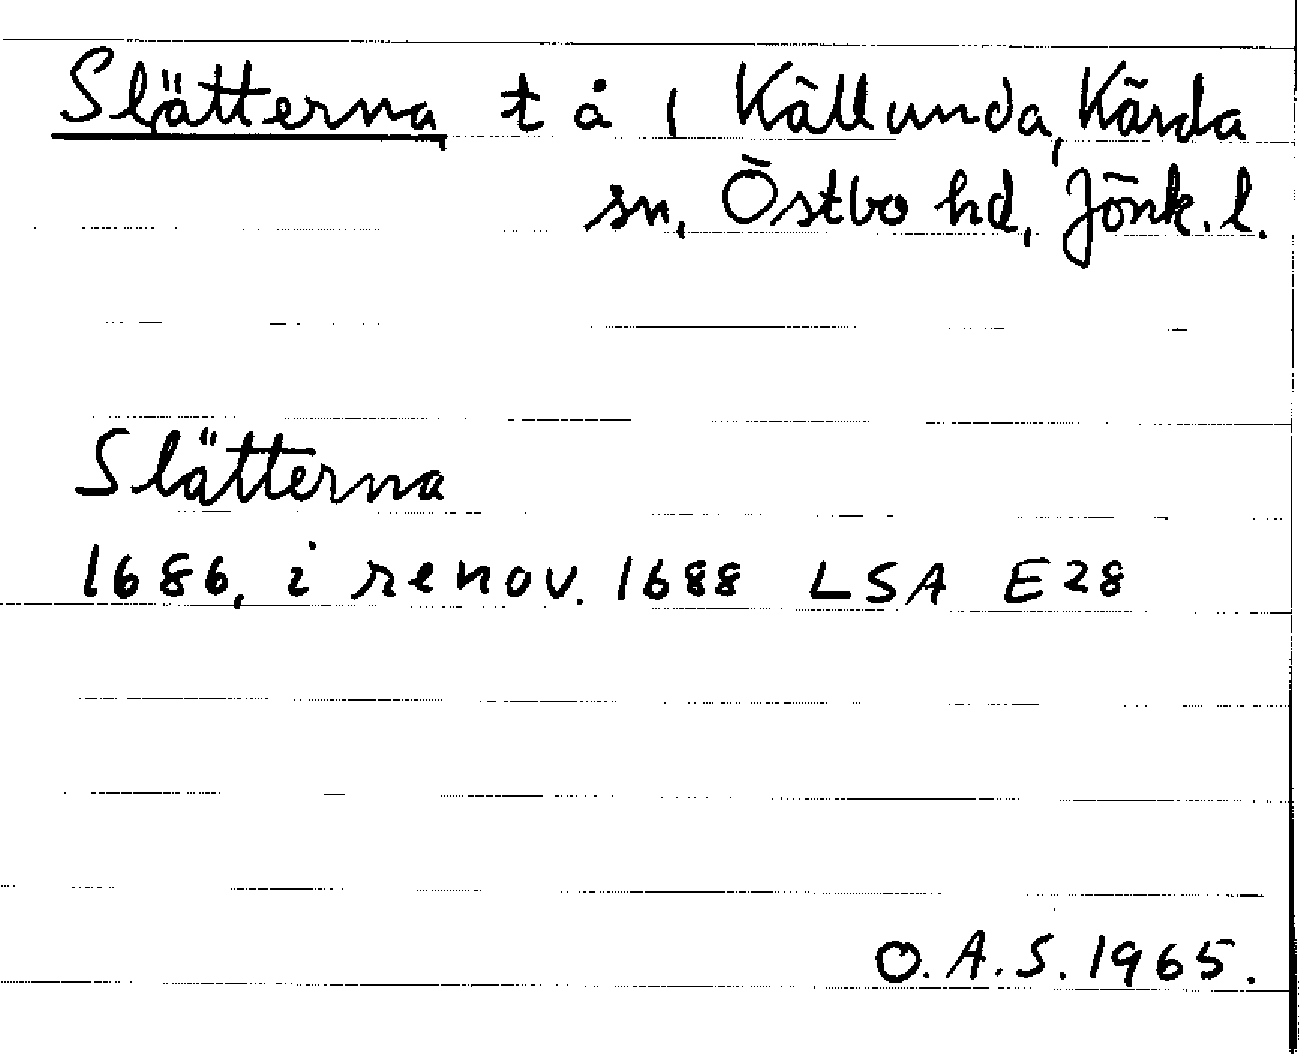 Slätterna, t å i Källunda, Kärda
sn, Östbo hd, Jönk. l.
Slätterna
1686, i renov. 1688 LSA E28
O. A. S. 1965.